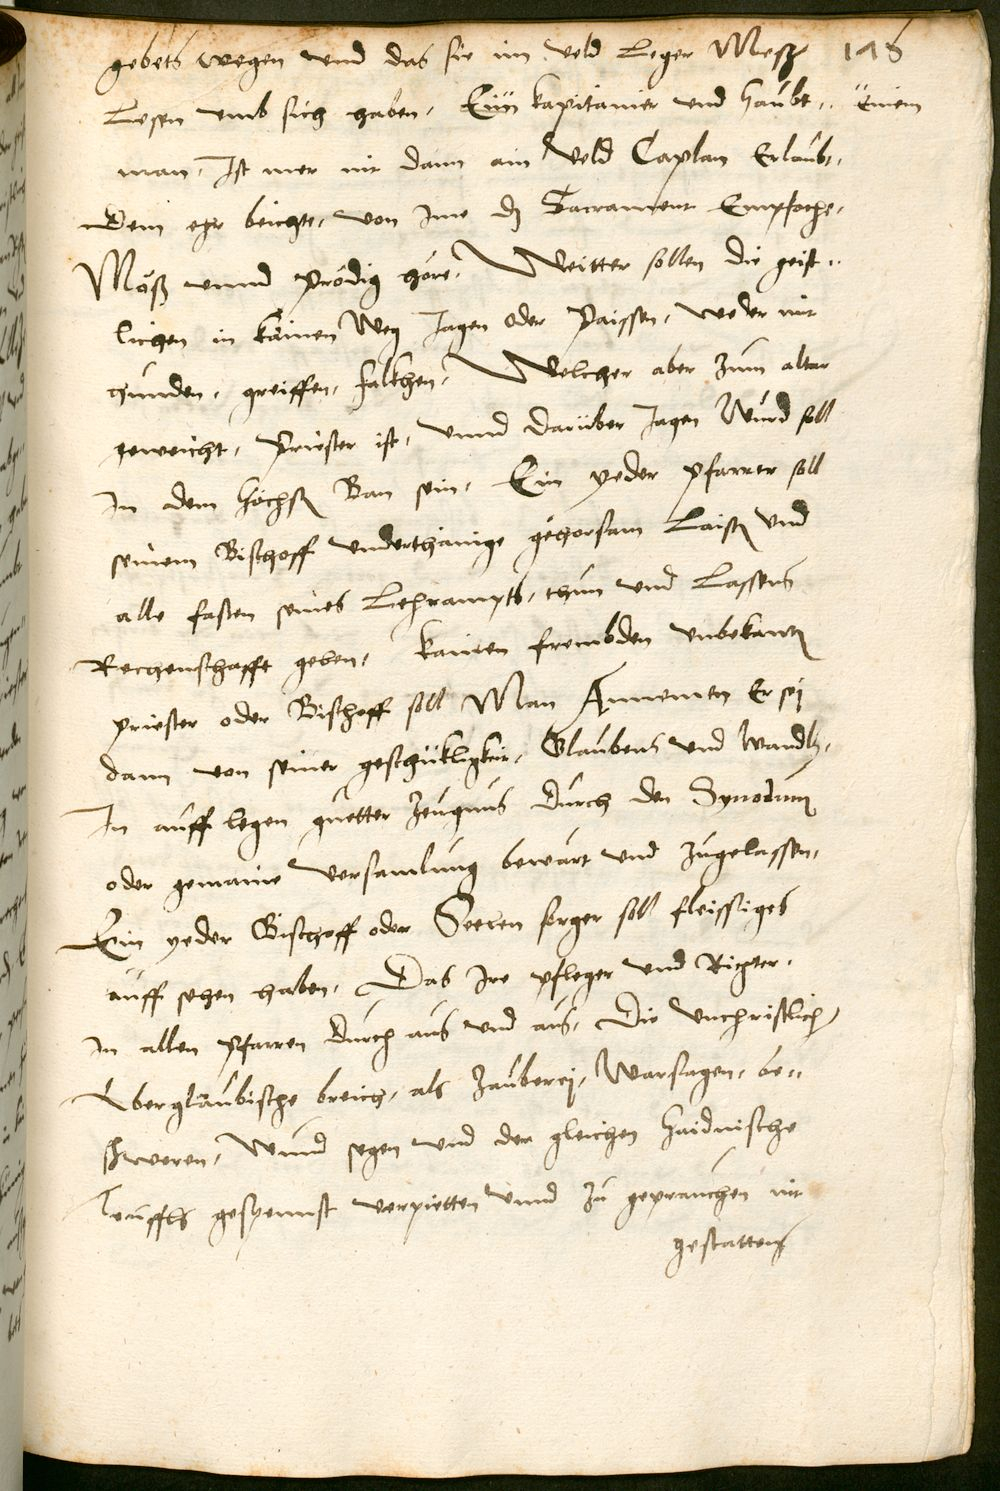 gebets wegen und das sie im veld Leger Mesz 145
Lesen umb sich haben, Ein kapitanier und haubt„ Einem
man, Ist mer nit dann ain Veld Caplan Erlaubt,
Dem ehr beichte, von ime dz Sacrament Empfache,
Mäß unnd Prödig höre, Weitter sollen die geist„
lichen in kainen Weg Jagen oder Paissen, weder mit
hunden, greiffen, falkhen, Welcher aber zum altar
geweicht, Priester ist, unnd darüber Jagen Wurd soll
In dem höchsten Ban sein, Ein yeder Pfarrer soll
seinem Bischoff underthänige gehorsam Laisten und
alle fasten seines Lehrampts, thun und Lassens
Rechenschafft geben, kainen frembden unbekanten
priester oder Bischoff soll Man Annemen Er sej
dann von seiner geschükligkeit, Glaubens und wandls,
In auff legen guetter Zeugnus durch den Synodum
oder gemaine versamlung bewärt und zugelassen,
Ein yeder Bischoff oder Seelen sorger soll fleissiges
auff sehen haben, Das Ire pfleger und Richter,
In allen Pfarren durch aus und aus, Die unchristlich,
Abergläubische breich, als Zauberej, Warsagen, be„
schweren, Wund segen und der gleichen haidnische
Teuffels gespennst verpietten unnd zu geprauchen nit
gestatten